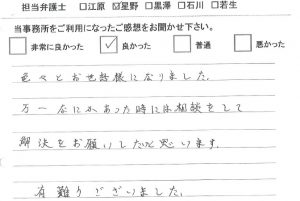 担当弁護士 □江原 ☑星野 □黒澤 □石川 □若生
当事務所をご利用になったご感想をお聞かせ下さい。
□非常に良かった ☑良かった □普通 □悪かった
色々とお世話様になりました。
万一なにかあった時には相談をして
解決をお願いしたいと思います。
有難うございました。